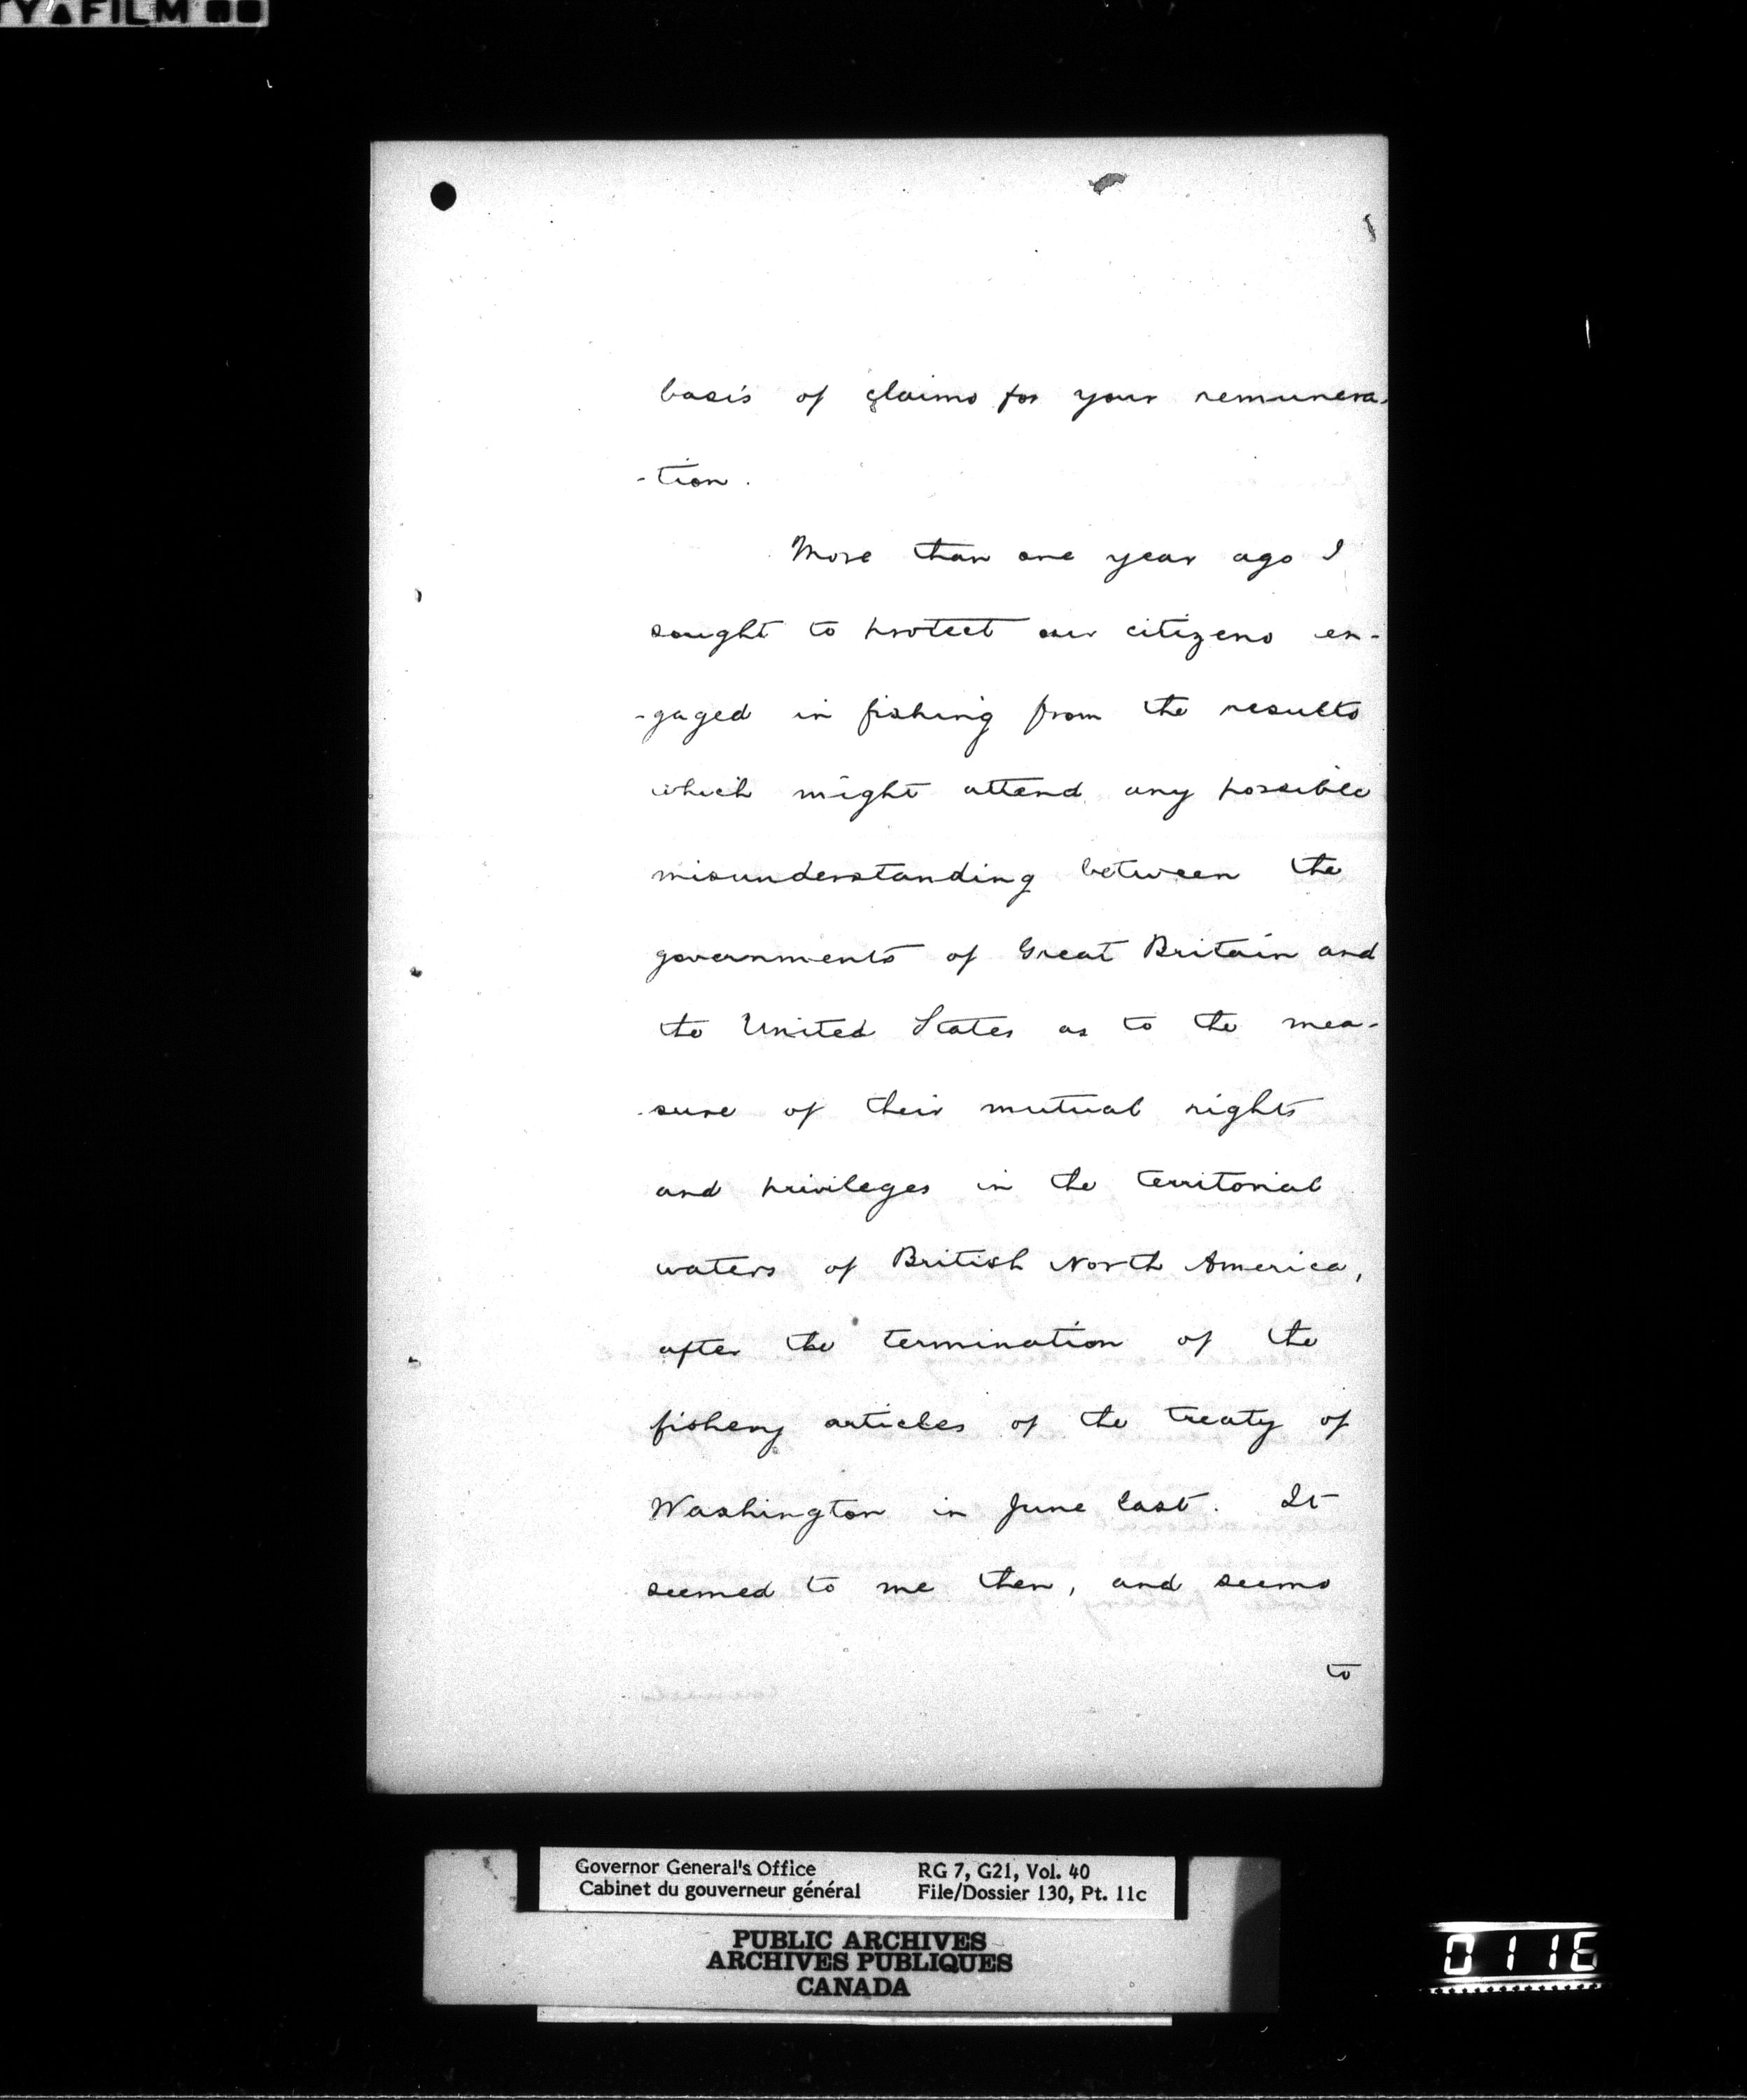 TY▲FILM
basis of claims for your remunera-
-tion.
More than one year ago I
sought to protect our citizens en-
-gaged in fishing from the results
which might attend any possible
misunderstanding between the
governments of Great Britain and
the United States as to the mea-
-sure of their mutual rights
and privileges in the territorial
waters of British North America,
after the termination of the
fishery articles of the treaty of
Washington in June last. It
seemed to me then, and seems
to
Governor General's Office RG 7, G21, Vol. 40
Cabinet du gouverneur général File/Dossier 130, Pt. 11c
PUBLIC ARCHIVES
ARCHIVES PUBLIQUES
CANADA
0116